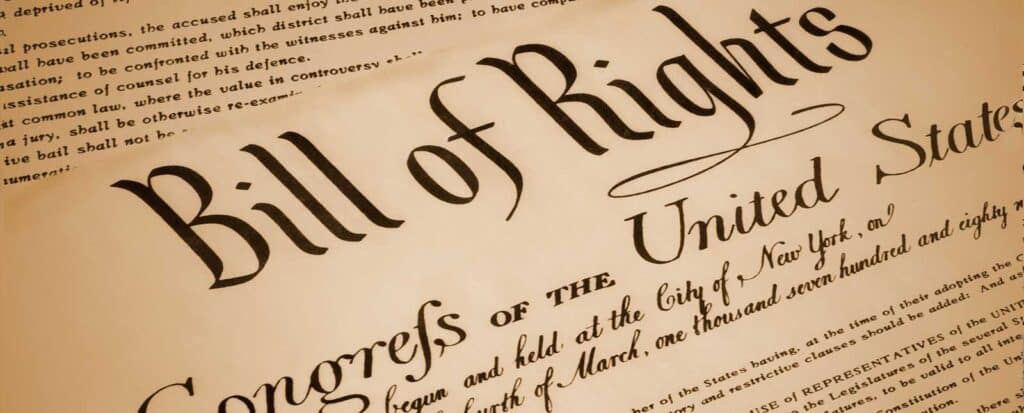 deprived of
prosecutions, the accused shall enjoy the
shall have been committed, which district shall have been
to be confronted with the witnesses against him; to have
assistance of counsel for his defence.
common law, where the value in controversy
jury, shall be otherwise re-exami
ive bail shall not be
Bill of Rights
Congreſs OF THE United States
begun and held at the City of New York, on
of March, one thousand seven hundred and eighty
of the States having, at the time of their adopting the
and restrictive clauses should be added: And as
OF REPRESENTATIVES of the UNIT
the Legislatures of the several
to be valid to all
Constitution of the